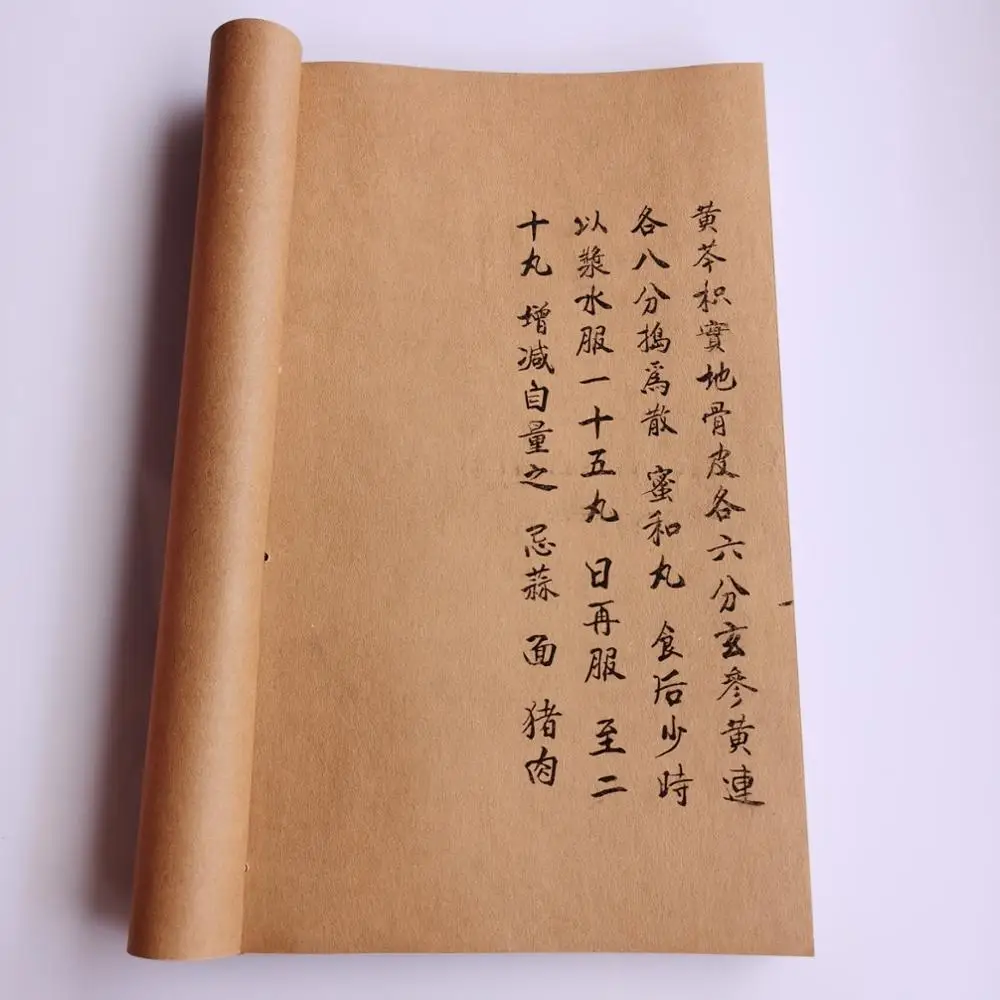 黄芩枳實地骨皮各六分玄參黄連
各八分搗爲散 蜜和丸 食后少時
以漿水服一十五丸 日再服 至二
十丸 增减自量之 忌蒜 面 猪肉